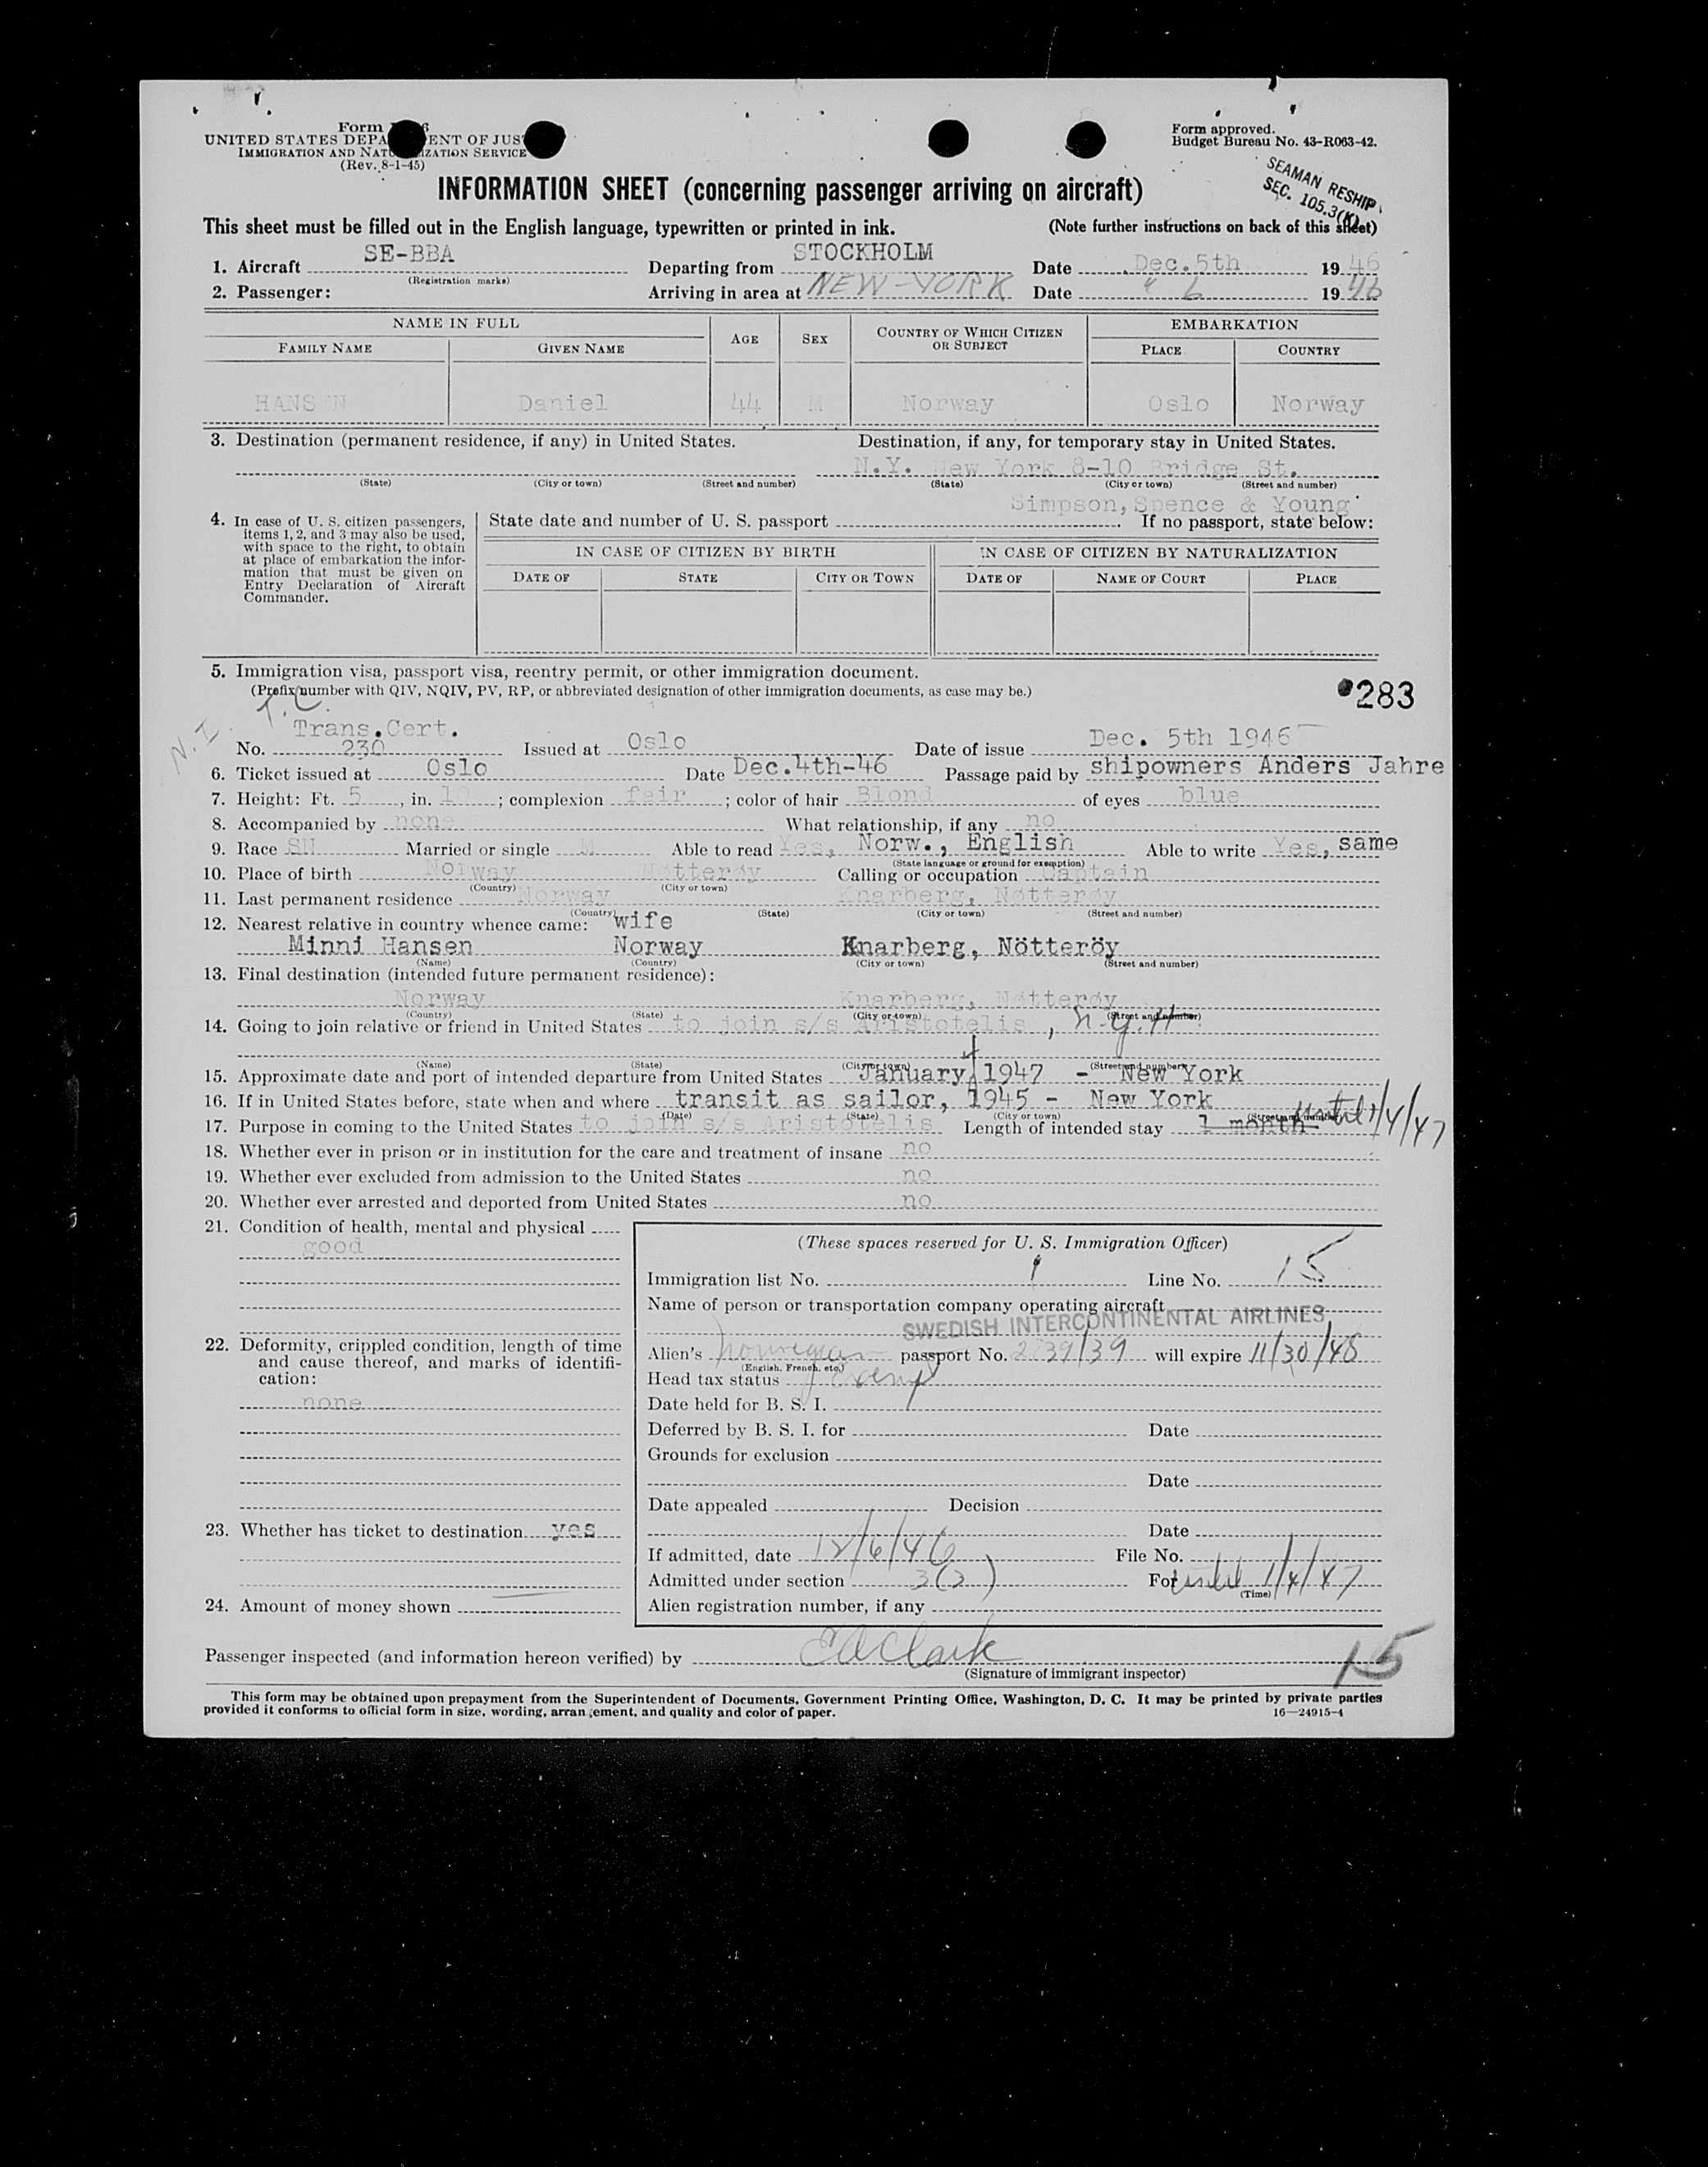 Form
UNITED STATES DEPA ENT OF JUS
IMMIGRATION AND NATU IZATION SERVICE
(Rev. 8-1-45)
Form approved.
Budget Bureau No. 43-R063-42.
SEAMAN RESHIP
SEC. 105.3(K)
INFORMATION SHEET (concerning passenger arriving on aircraft)
This sheet must be filled out in the English language, typewritten or printed in ink. (Note further instructions on back of this sheet)
1. Aircraft SE-BBA Departing from STOCKHOLM Date Dec.5th 19 46
(Registration marks)
2. Passenger: Arriving in area at NEW-YORK Date " 6 19 46
NAME IN FULL AGE SEX COUNTRY OF WHICH CITIZEN OR SUBJECT EMBARKATION
FAMILY NAME GIVEN NAME PLACE COUNTRY
HANS N Daniel 44 M Norway Oslo Norway
3. Destination (permanent residence, if any) in United States. Destination, if any, for temporary stay in United States.
N.Y. New York 8-10 Bridge St.
(State) (City or town) (Street and number) (State) (City or town) (Street and number)
Simpson, Spence & Young
4. In case of U. S. citizen passengers, items 1, 2, and 3 may also be used, with space to the right, to obtain at place of embarkation the information that must be given on Entry Declaration of Aircraft Commander.
State date and number of U. S. passport If no passport, state below:
IN CASE OF CITIZEN BY BIRTH IN CASE OF CITIZEN BY NATURALIZATION
DATE OF STATE CITY OR TOWN DATE OF NAME OF COURT PLACE
5. Immigration visa, passport visa, reentry permit, or other immigration document.
(Prefix number with QIV, NQIV, PV, RP, or abbreviated designation of other immigration documents, as case may be.)
283
T.C.
N.I.
Trans.Cert.
No. 230 Issued at Oslo Date of issue Dec. 5th 1946
6. Ticket issued at Oslo Date Dec.4th-46 Passage paid by shipowners Anders Jahre
7. Height: Ft. 5, in. 10; complexion fair; color of hair Blond of eyes blue
8. Accompanied by none What relationship, if any no
9. Race SN Married or single M Able to read Yes, Norw., English Able to write Yes, same
(State language or ground for exemption)
10. Place of birth Norway Nøtterøy Calling or occupation Captain
(Country) (City or town)
11. Last permanent residence Norway Knarberg, Nøtterøy
(Country) (State) (City or town) (Street and number)
12. Nearest relative in country whence came: wife
Minni Hansen Norway Knarberg, Nötteröy
(Name) (Country) (City or town) (Street and number)
13. Final destination (intended future permanent residence):
Norway Knarberg, Nøtterøy
(Country) (State) (City or town) (Street and number)
14. Going to join relative or friend in United States to join s/s Aristotelis, N.Y.H.
(Name) (State) (City or town) (Street and number)
15. Approximate date and port of intended departure from United States January 4 1947 - New York
16. If in United States before, state when and where transit as sailor, 1945 - New York
(Date) (State) (City or town) (Street and number)
17. Purpose in coming to the United States to join s/s Aristotelis Length of intended stay 1 month until 1/4/47
18. Whether ever in prison or in institution for the care and treatment of insane no
19. Whether ever excluded from admission to the United States no
20. Whether ever arrested and deported from United States no
21. Condition of health, mental and physical
good
22. Deformity, crippled condition, length of time and cause thereof, and marks of identification:
none
23. Whether has ticket to destination yes
24. Amount of money shown
(These spaces reserved for U. S. Immigration Officer)
Immigration list No. 1 Line No. 15
Name of person or transportation company operating aircraft
SWEDISH INTERCONTINENTAL AIRLINES
Alien's Norwegian passport No. 39/39 will expire 11/30/48
(English, French, etc.)
Head tax status Exempt
Date held for B. S. I.
Deferred by B. S. I. for Date
Grounds for exclusion
Date
Date appealed Decision
Date
If admitted, date 12/6/46 File No.
Admitted under section 3(3) For until 1/4/47
(Time)
Alien registration number, if any
Passenger inspected (and information hereon verified) by EAClark
(Signature of immigrant inspector)
15
This form may be obtained upon prepayment from the Superintendent of Documents, Government Printing Office, Washington, D. C. It may be printed by private parties
provided it conforms to official form in size, wording, arrangement, and quality and color of paper. 16—24915-4